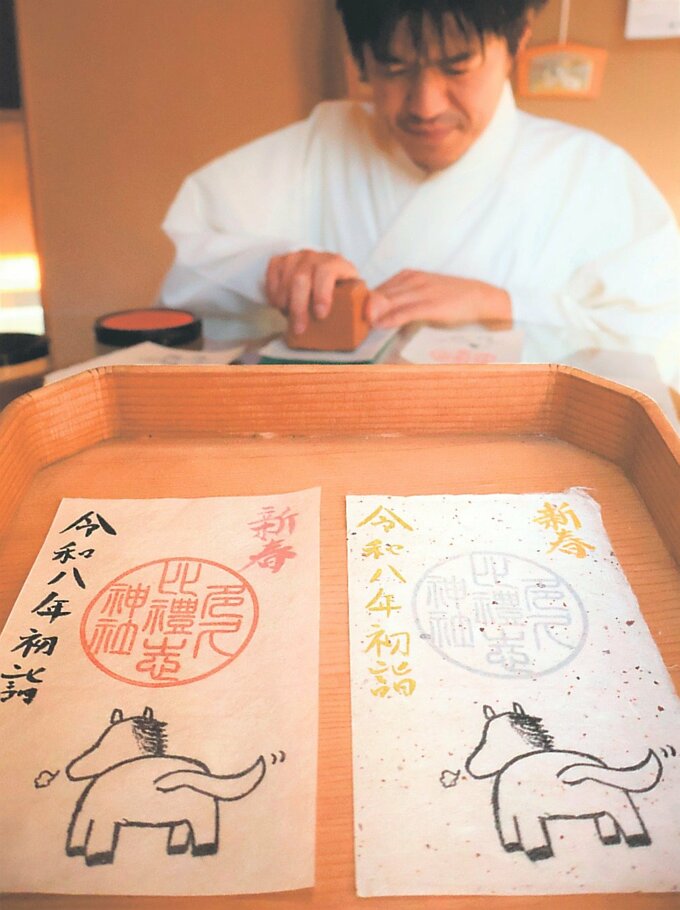 新春
多久
比禮志
神社
令和八年初詣
新春
多久
比禮志
神社
令和八年初詣